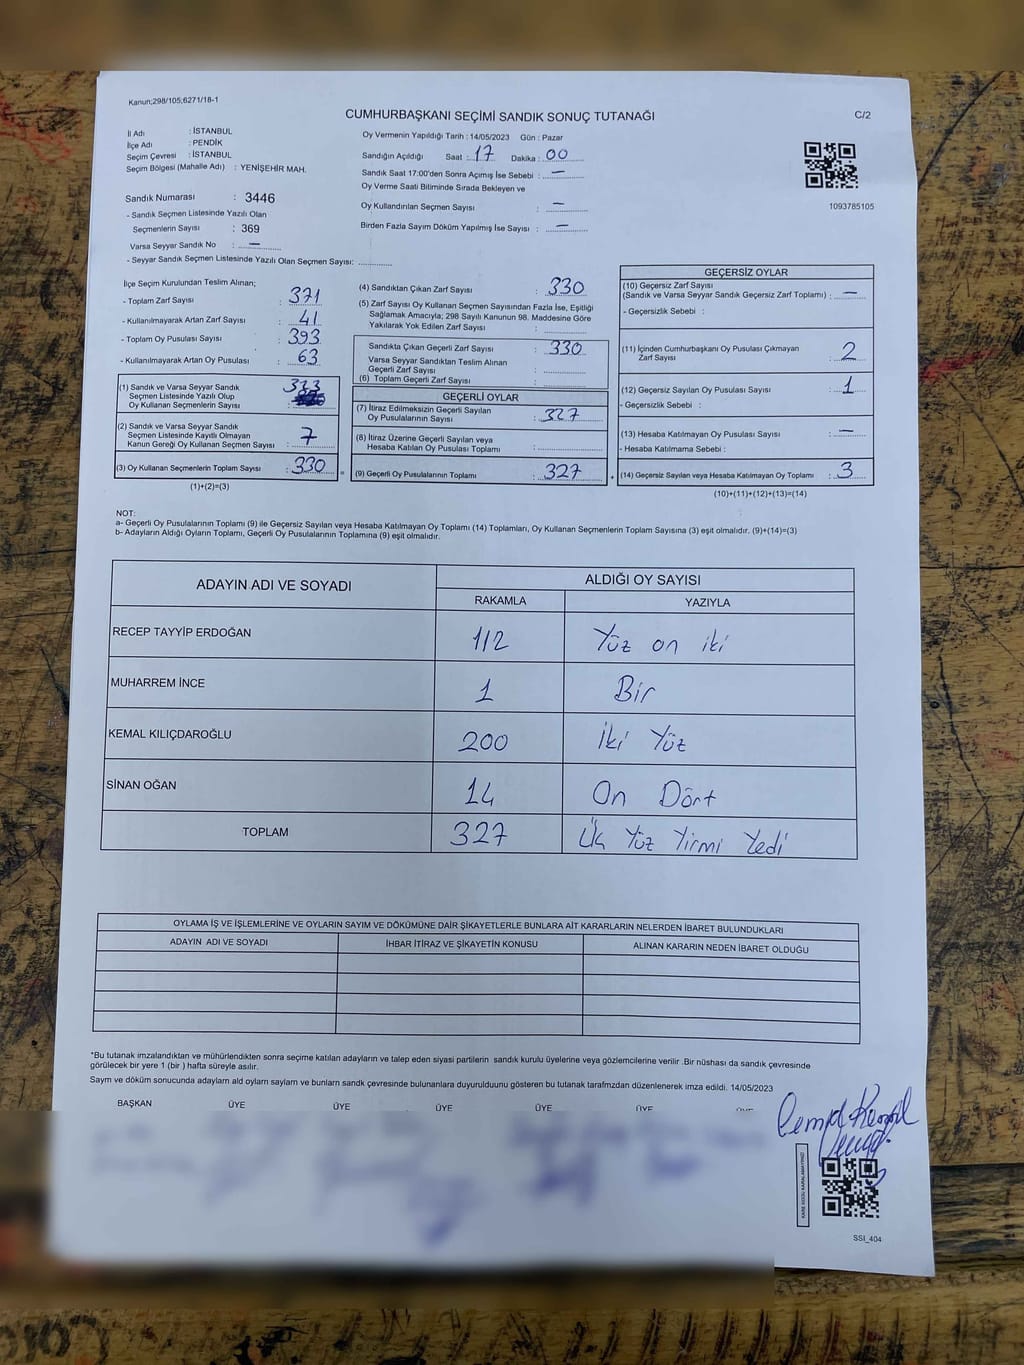 Kanun;298/105;6271/18-1
CUMHURBAŞKANI SEÇİMİ SANDIK SONUÇ TUTANAĞI
C/2
İl Adı : İSTANBUL
İlçe Adı : PENDİK
Seçim Çevresi : İSTANBUL
Seçim Bölgesi (Mahalle Adı) : YENİŞEHİR MAH.
Sandık Numarası : 3446
- Sandık Seçmen Listesinde Yazılı Olan
Seçmenlerin Sayısı : 369
Varsa Seyyar Sandık No : —
- Seyyar Sandık Seçmen Listesinde Yazılı Olan Seçmen Sayısı:
Oy Vermenin Yapıldığı Tarih : 14/05/2023 Gün : Pazar
Sandığın Açıldığı Saat : 17 Dakika : 00
Sandık Saat 17:00'den Sonra Açımış İse Sebebi : —
Oy Verme Saati Bitiminde Sırada Bekleyen ve
Oy Kullandırılan Seçmen Sayısı : —
Birden Fazla Sayım Döküm Yapılmış İse Sayısı : —
1093785105
İlçe Seçim Kurulundan Teslim Alınan;
- Toplam Zarf Sayısı : 371
- Kullanılmayarak Artan Zarf Sayısı : 41
- Toplam Oy Pusulası Sayısı : 393
- Kullanılmayarak Artan Oy Pusulası : 63
(1) Sandık ve Varsa Seyyar Sandık
Seçmen Listesinde Yazılı Olup
Oy Kullanan Seçmenlerin Sayısı : 323
(2) Sandık ve Varsa Seyyar Sandık
Seçmen Listesinde Kayıtlı Olmayan
Kanun Gereği Oy Kullanan Seçmen Sayısı : 7
(3) Oy Kullanan Seçmenlerin Toplam Sayısı : 330
(1)+(2)=(3)
(4) Sandıktan Çıkan Zarf Sayısı : 330
(5) Zarf Sayısı Oy Kullanan Seçmen Sayısından Fazla İse, Eşitliği
Sağlamak Amacıyla; 298 Sayılı Kanunun 98. Maddesine Göre
Yakılarak Yok Edilen Zarf Sayısı :
Sandıkta Çıkan Geçerli Zarf Sayısı : 330
Varsa Seyyar Sandıktan Teslim Alınan
Geçerli Zarf Sayısı :
(6) Toplam Geçerli Zarf Sayısı :
GEÇERLİ OYLAR
(7) İtiraz Edilmeksizin Geçerli Sayılan
Oy Pusulalarının Sayısı : 327
(8) İtiraz Üzerine Geçerli Sayılan veya
Hesaba Katılan Oy Pusulası Toplamı :
(9) Geçerli Oy Pusulalarının Toplamı : 327
GEÇERSİZ OYLAR
(10) Geçersiz Zarf Sayısı
(Sandık ve Varsa Seyyar Sandık Geçersiz Zarf Toplamı) : —
- Geçersizlik Sebebi :
(11) İçinden Cumhurbaşkanı Oy Pusulası Çıkmayan
Zarf Sayısı : 2
(12) Geçersiz Sayılan Oy Pusulası Sayısı : 1
- Geçersizlik Sebebi :
(13) Hesaba Katılmayan Oy Pusulası Sayısı : —
- Hesaba Katılmama Sebebi :
(14) Geçersiz Sayılan veya Hesaba Katılmayan Oy Toplamı : 3
(10)+(11)+(12)+(13)=(14)
NOT:
a- Geçerli Oy Pusulalarının Toplamı (9) ile Geçersiz Sayılan veya Hesaba Katılmayan Oy Toplamı (14) Toplamları, Oy Kullanan Seçmenlerin Toplam Sayısına (3) eşit olmalıdır. (9)+(14)=(3)
b- Adayların Aldığı Oyların Toplamı, Geçerli Oy Pusulalarının Toplamına (9) eşit olmalıdır.
ADAYIN ADI VE SOYADI ALDIĞI OY SAYISI
RAKAMLA YAZIYLA
RECEP TAYYİP ERDOĞAN 112 Yüz on iki
MUHARREM İNCE 1 Bir
KEMAL KILIÇDAROĞLU 200 İki Yüz
SİNAN OĞAN 14 On Dört
TOPLAM 327 Yüz Yirmi Yedi
OYLAMA İŞ VE İŞLEMLERİNE VE OYLARIN SAYIM VE DÖKÜMÜNE DAİR ŞİKAYETLERLE BUNLARA AİT KARARLARIN NELERDEN İBARET BULUNDUKLARI
ADAYIN ADI VE SOYADI İHBAR İTİRAZ VE ŞİKAYETİN KONUSU ALINAN KARARIN NEDEN İBARET OLDUĞU
*Bu tutanak imzalandıktan ve mühürlendikten sonra seçime katılan adayların ve talep eden siyasi partilerin sandık kurulu üyelerine veya gözlemcilerine verilir .Bir nüshası da sandık çevresinde
görülecek bir yere 1 (bir ) hafta süreyle asılır.
Sayım ve döküm sonucunda adaylam ald oylarn saylam ve bunlarn sandk çevresinde bulunanlara duyurulduunu gösteren bu tutanak tarafmzdan düzenlenerek imza edildi. 14/05/2023
BAŞKAN ÜYE ÜYE ÜYE ÜYE ÜYE
SSI_404